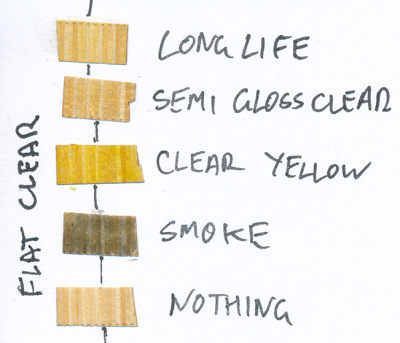 LONG LIFE
SEMI GLOSS CLEAR
CLEAR YELLOW
SMOKE
NOTHING
FLAT CLEAR